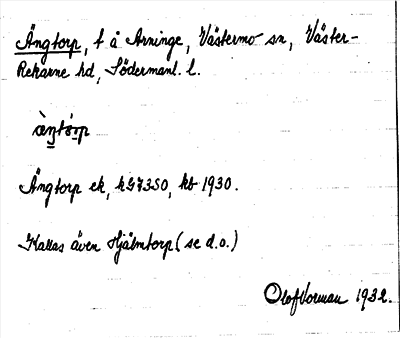 Ängtorp, t å Arninge, Västermo sn, Väster-
Rekarne hd, Södermanl. l.
Ängtorp ek, kb 1930.
Kallas även Hjälmtorp (se d.o.)
Olof Vorman 1932.